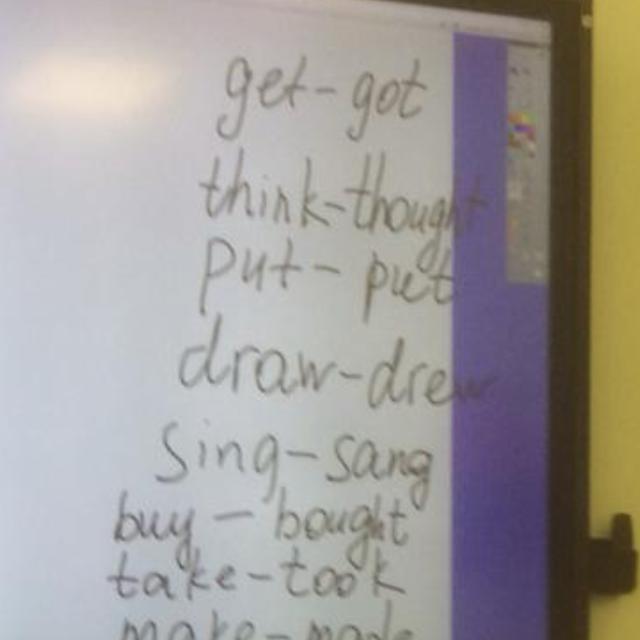 get-got
think-thought
put-put
draw-drew
sing-sang
buy-bought
take-took
make-made